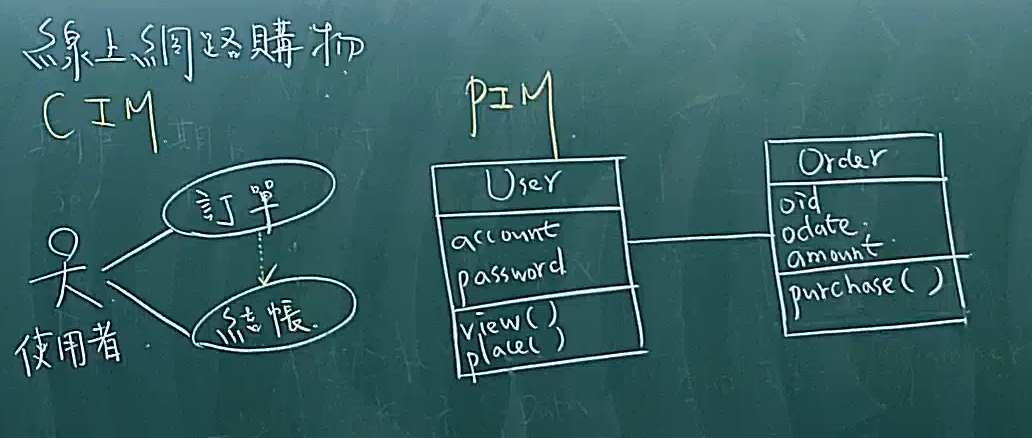 線上網路購物
CIM
訂單
結帳
使用者
PIM
User
account
password
view()
place()
Order
oid
odate
amount
purchase()